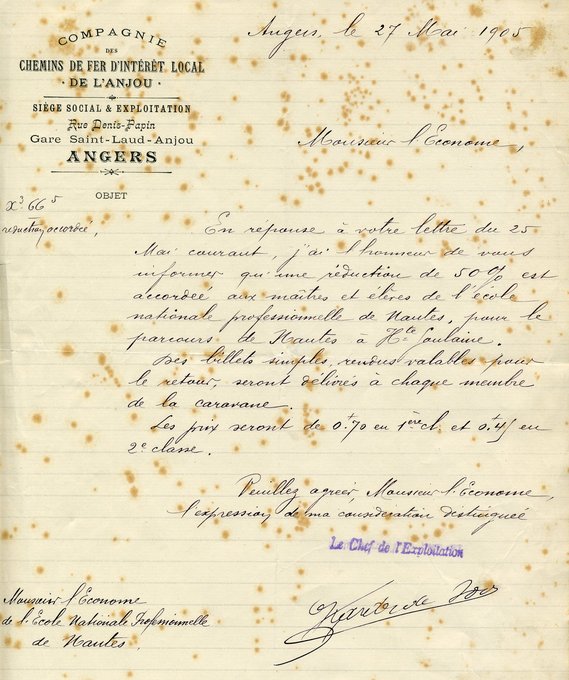 COMPAGNIE
DES
CHEMINS DE FER D'INTÉRÊT LOCAL
DE L'ANJOU
SIÈGE SOCIAL & EXPLOITATION
Rue Denis-Papin
Gare Saint-Laud-Anjou
ANGERS
OBJET
réduction accordée,
Angers, le 27 Mai 1905
Monsieur l'Econome,
En réponse à votre lettre du 25
Mai courant, j'ai l'honneur de vous
informer qu'une réduction de 50% est
accordée aux maîtres et élèves de l'école
nationale professionnelle de Nantes, pour le
parcours de Nantes à Hte Goulaine.
Des billets simples, rendus valables pour
le retour, seront délivrés à chaque membre
de la caravane.
Les prix seront de 0f70 en 1ère cl. et 0f45 en
2e classe.
Veuillez agréer, Monsieur l'Econome,
l'expression de ma considération distinguée
Le Chef de l'Exploitation
Monsieur l'Econome
de l'École Nationale Professionnelle
de Nantes.